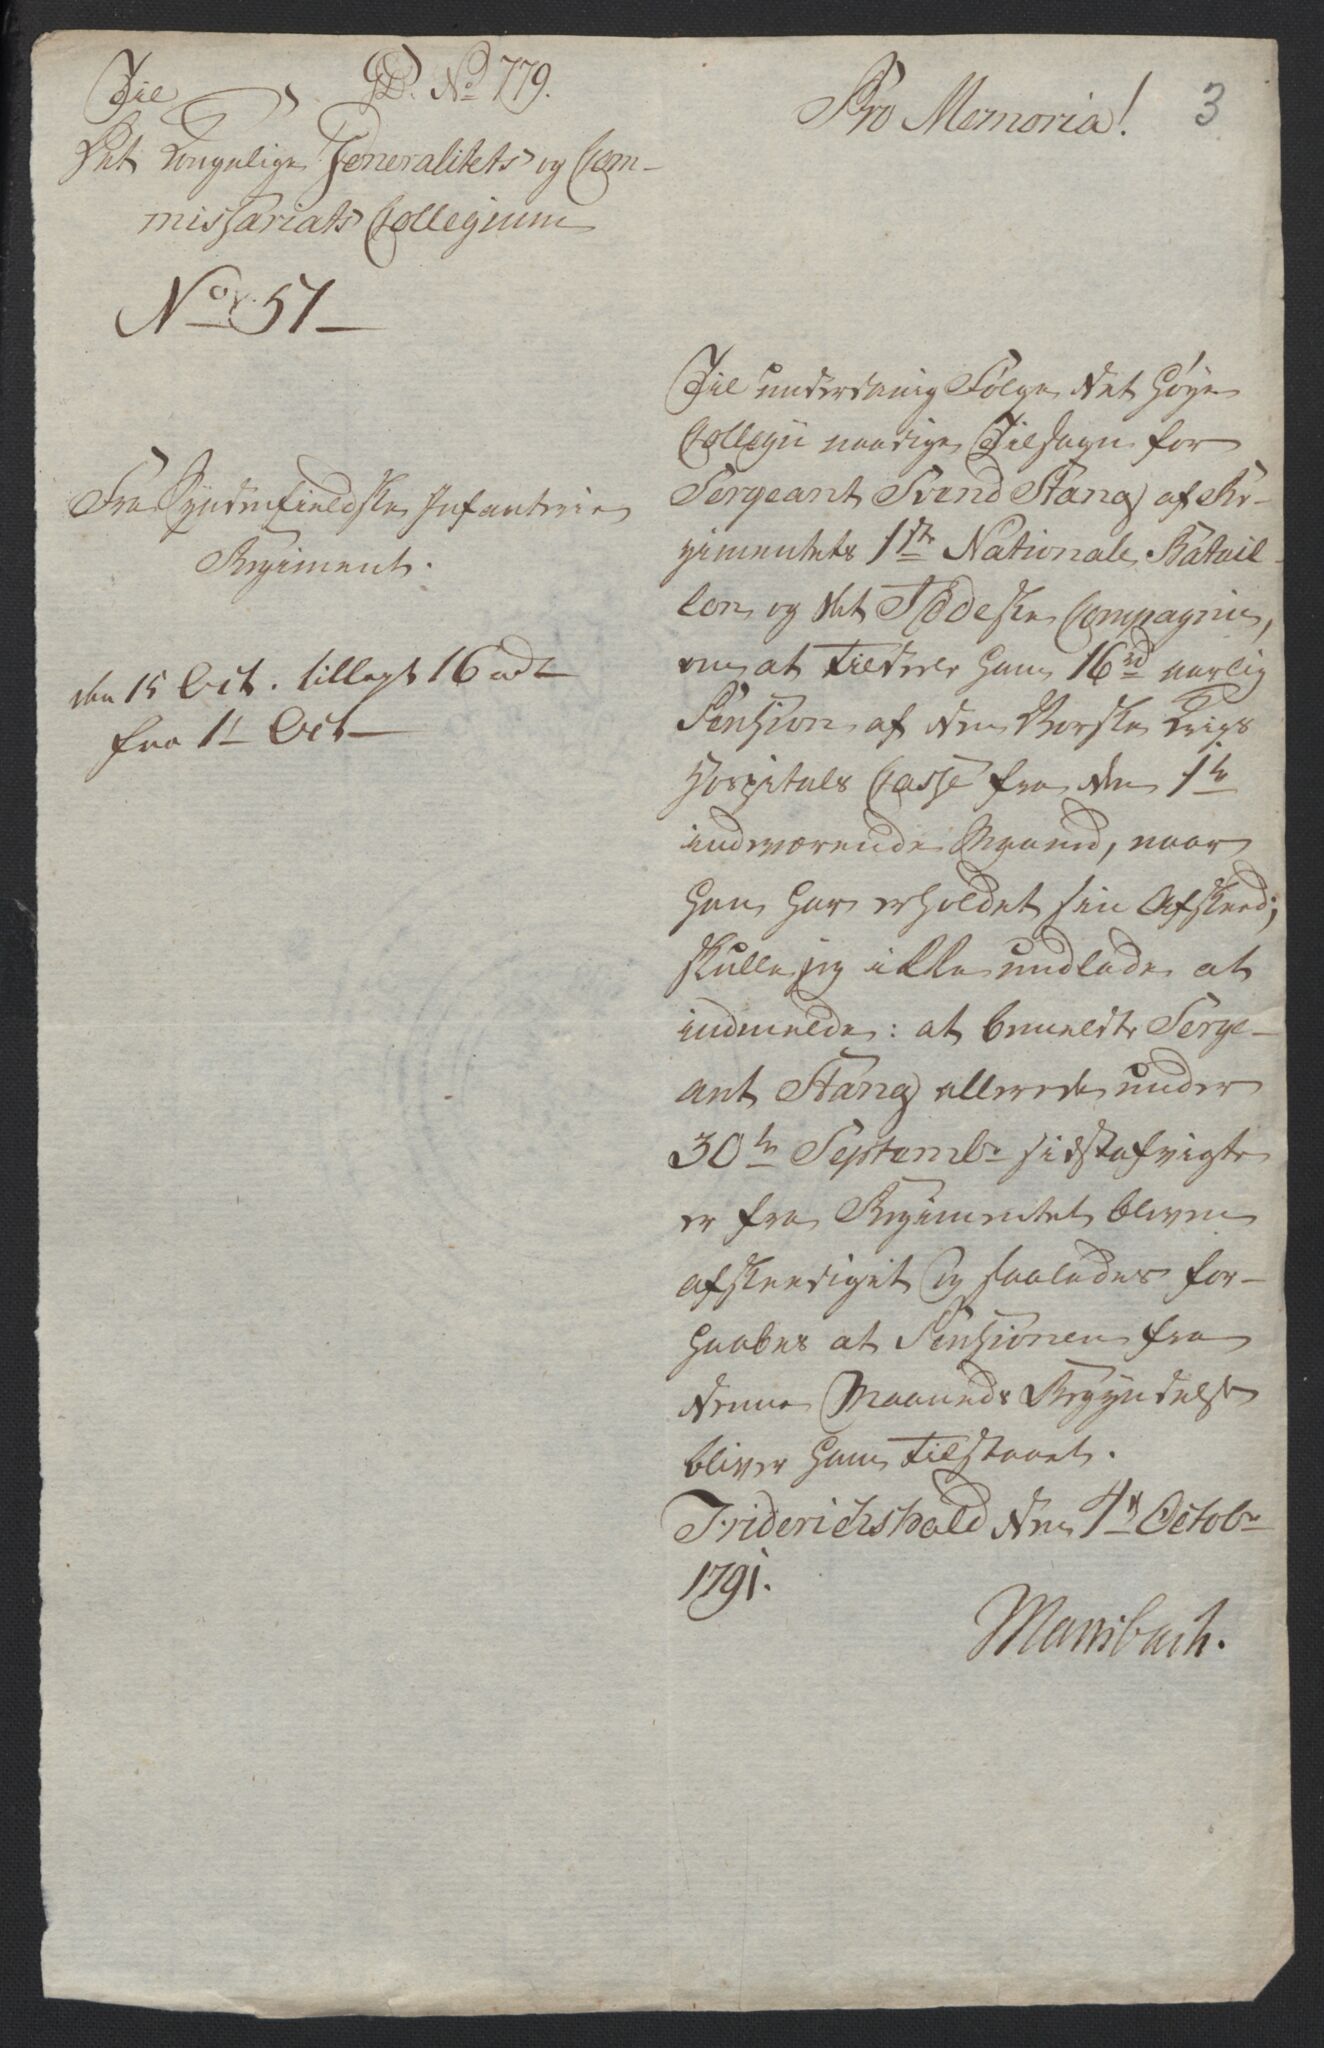 Til D. No 779.
Det Kongelige Generalitets og Com-
missariats Collegium
No 57
Fra Syndenfieldske Infanterie
Regiment.
den 15 Oct. tillagt 16 rd
fra 1t Oct
Pro Memoria! 3
Til underdanig Følge det høye
Collegii naadige Tilsagn for
Sergeant Svend Stang af Re-
gimentets 1ste Nationale Batail-
lon og det Rødeske Compagnie,
om at tildele ham 16 rd aarlig
Pension af den Norske Krigs
Hospitals Casse fra den 1te
indeværende Maaned, naar
han har erholdet sin Afskeed;
skulle jeg ikke undlade at
indmelde: at bemeldte Serge-
ant Stang allerede under
30te Septembr sidstafvigte
er fra Regimentet bleven
afskeediget og saaledes for-
haabes at Pensionen fra
denne Maaneds Begyndelse
bliver ham tilstaaet.
Friderichshald den 4de Octobr
1791.
Mansbach.